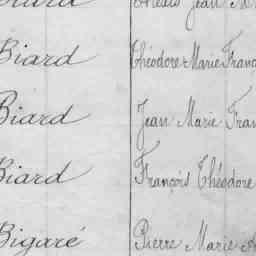 Jean
Biard Théodore Marie
Biard Jean Marie
Biard François Théodore
Bigaré Pierre Marie